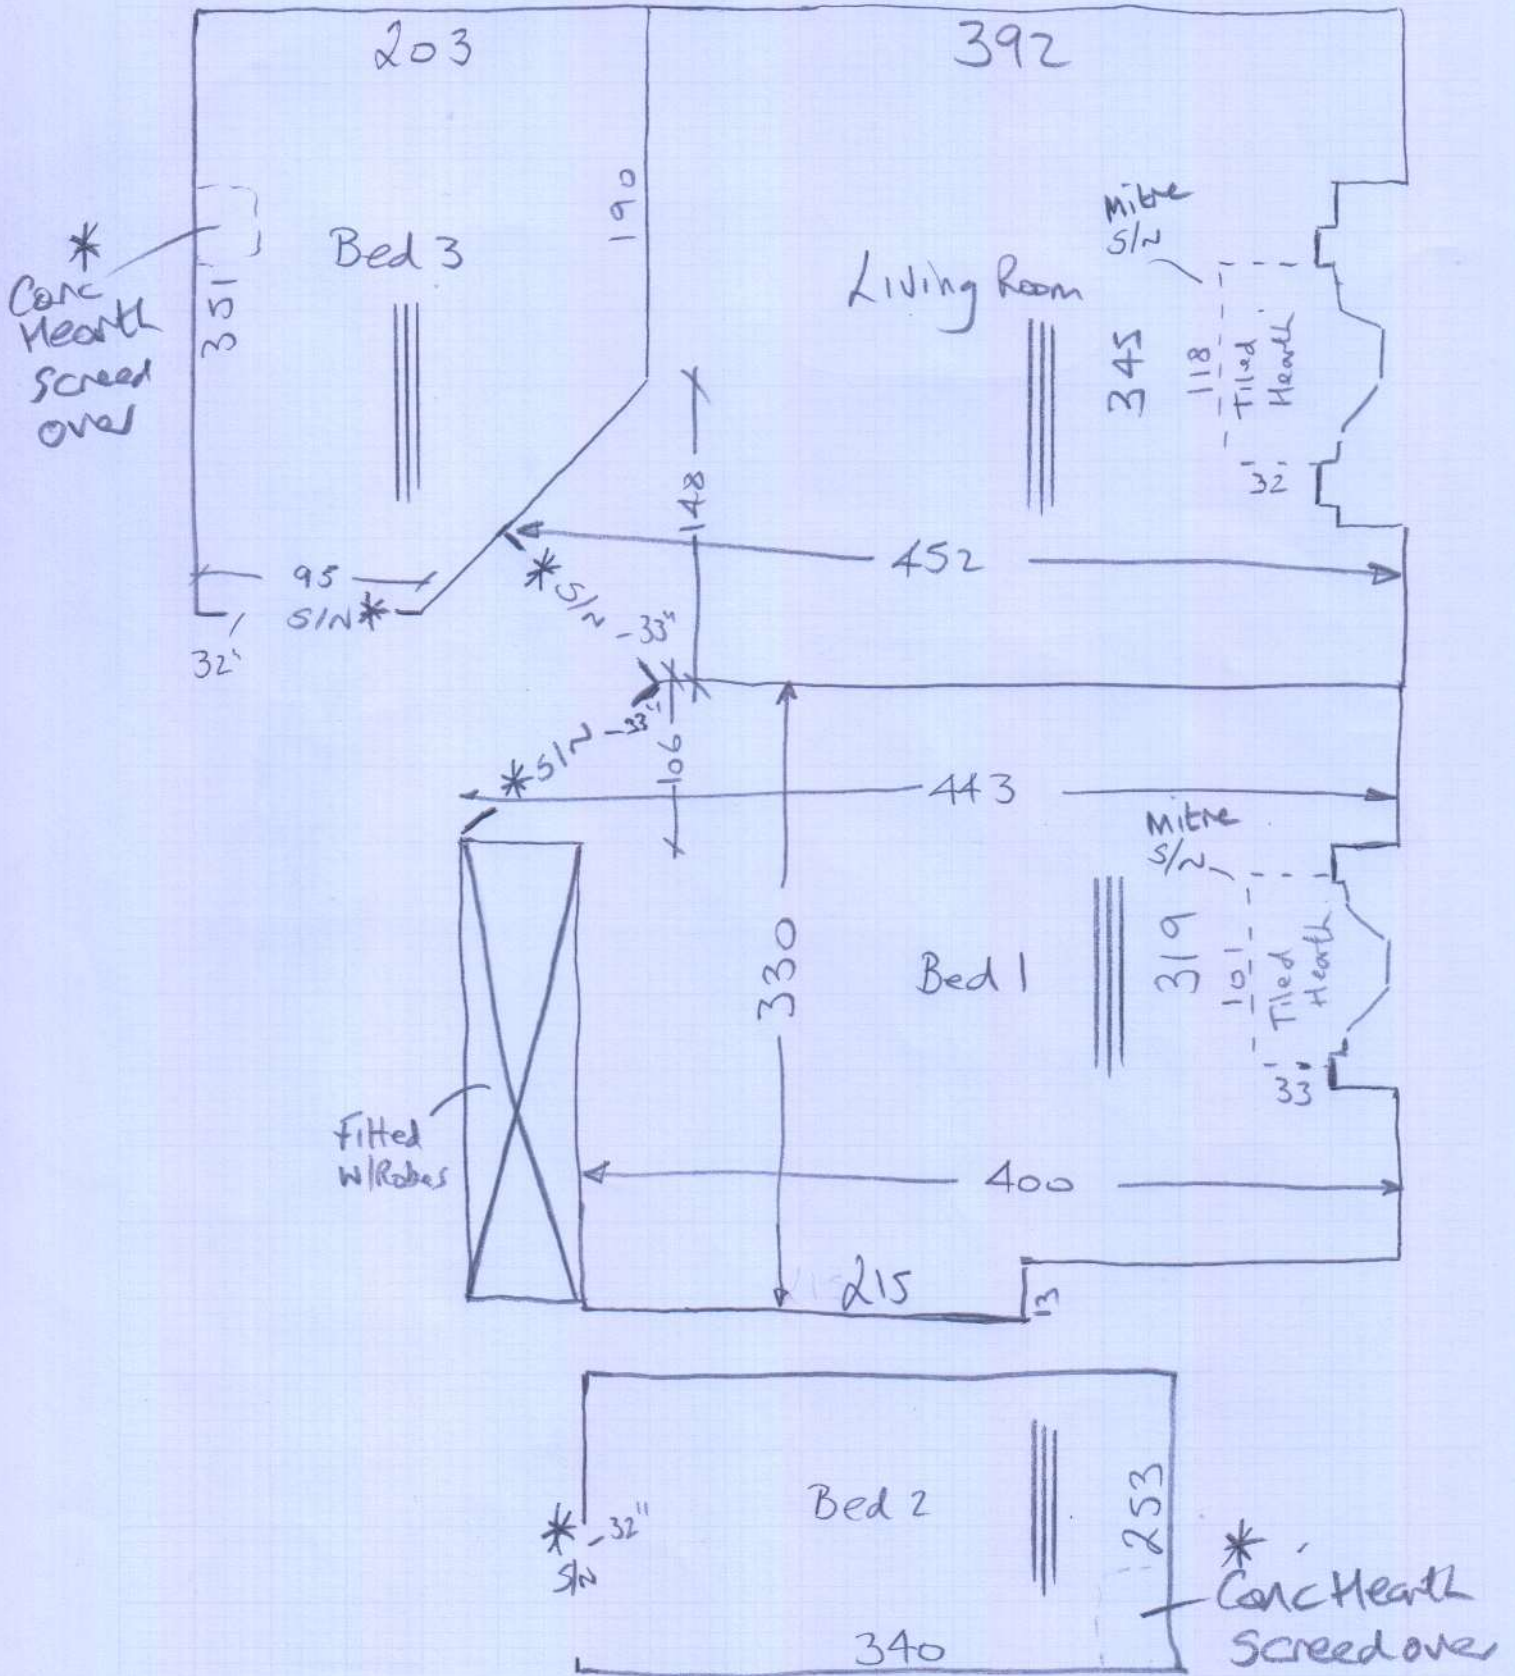 203
392
190
Bed 3
*
Conc
Hearth
screed
over
351
Living Room
Mitre
S/N
345
118
Tiled
Hearth
32
148
452
95
S/N *
32"
* S/N - 33"
* S/N - 33"
106
443
Mitre
S/N
330
Bed 1
319
101
Tiled
Hearth
33
Fitted
W/Robes
400
215
13
Bed 2
253
* - 32"
S/N
340
*
Conc Hearth
Screed over